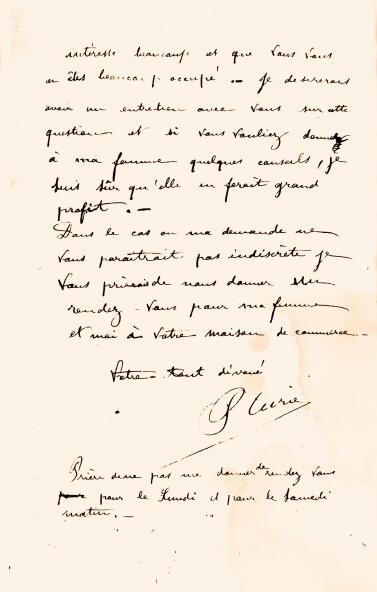 intéresse beaucoup et que vous vous
en êtes beaucoup occupé. — Je desirerais
avoir un entretien avec vous sur cette
question et si vous vouliez donner
à ma femme quelques conseils, je
suis sûr qu'elle en ferait grand
profit. —
Dans le cas ou ma demande ne
vous paraitrait pas indiscrète je
vous prierais de nous donner un
rendez-vous pour ma femme
et moi à votre maison de commerce. —
Votre tout dévoué
P Curie
Prière de ne pas me donner de rendez vous
pour le Lundi et pour le Samedi
matin. —